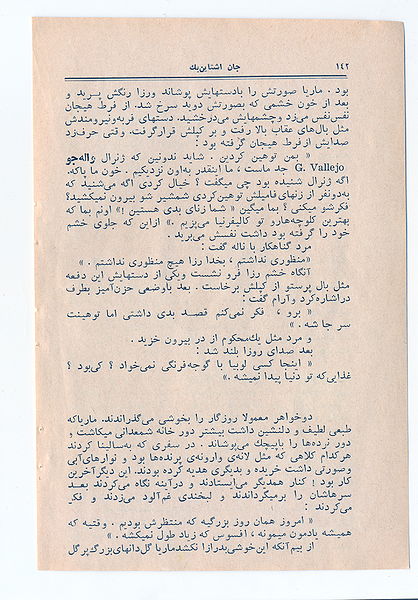 ۱۴۲
جان اشتاین‌بك
بود . ماریا صورتش را بادستهایش پوشاند ورزا رنگش پرید و
بعد از خون خشمی که بصورتش دوید سرخ شد. از فرط هیجان
نفس‌نفس میزد وچشمهایش می‌درخشید. دستهای فربه‌ونیرومندش
مثل بال‌های عقاب بالا رفت و بر کپلش قرارگرفت. وقتی حرف‌زد
صدایش ازفرط هیجان گرفته بود :
« بمن توهین کردین . شاید ندونین که ژنرال والە‌جو
G. Vallejo جد ماست ، ما اینقدر به‌اون نزدیکیم . خون ما پاکه.
اگه ژنرال شنیده بود چی میگفت ؟ خیال کردی اگه می‌شنید که
به‌دونفر از زنهای فامیلش توهین‌کردی شمشیر شو بیرون نمیکشید؟
فکرشو میکنی ؟ بما میگین « شما زنای بدی هستین !» اونم بما که
بهترین کلوچه‌هارو تو کالیفرنیا می‌پزیم .» ازاین که جلوی خشم
خود را گرفته بود داشت نفسش می‌برید .
مرد گناهکار با ناله گفت :
«منظوری نداشتم ، بخدا رزا هیچ منظوری نداشتم . »
آنگاه خشم رزا فرو نشست ویکی از دستهایش این دفعه
مثل بال پرستو از کپلش برخاست . بعد باوضعی حزن‌آمیز بطرف
دراشاره‌کرد وآرام گفت :
« برو ، فکر نمی‌کنم قصد بدی داشتی اما توهینت
سر جا شه . »
و مرد مثل یك‌محکوم از در بیرون خزید .
بعد صدای روزا بلند شد :
« اینجا کسی لوبیا با گوجه‌فرنگی نمی‌خواد ؟ کی‌بود ؟
غذایی‌که تو دنیا پیدا نمیشه .»
دوخواهر معمولا روزگار را بخوشی می‌گذراندند. ماریاکه
طبعی لطیف و دلنشین داشت بیشتر دور خانه شمعدانی میکاشت و
دور نرده‌ها را باپیچك می‌پوشاند . در سفری که به‌سالینا کردند
هرکدام کلاهی که مثل لانه‌ی وارونه‌ی پرنده‌ها بود و نوارهای‌آبی
وصورتی داشت خریده و بدیگری هدیه کرده بودند. این دیگرآخرین
کار بود ! کنار همدیگر می‌ایستادند و درآینه نگاه می‌کردند بعد
سرهاشان را برمیگرداندند و لبخندی غم‌آلود میزدند و فکر
می‌کردند :
« امروز همان روز بزرگیه که منتظرش بودیم . وقتیه که
همیشه یادمون میمونه ، افسوس که زیاد طول نمیکشه . »
از بیم‌آنکه این‌خوشی‌بدرازا نکشدماریا گل‌دانهای‌بزرگ‌پرگل